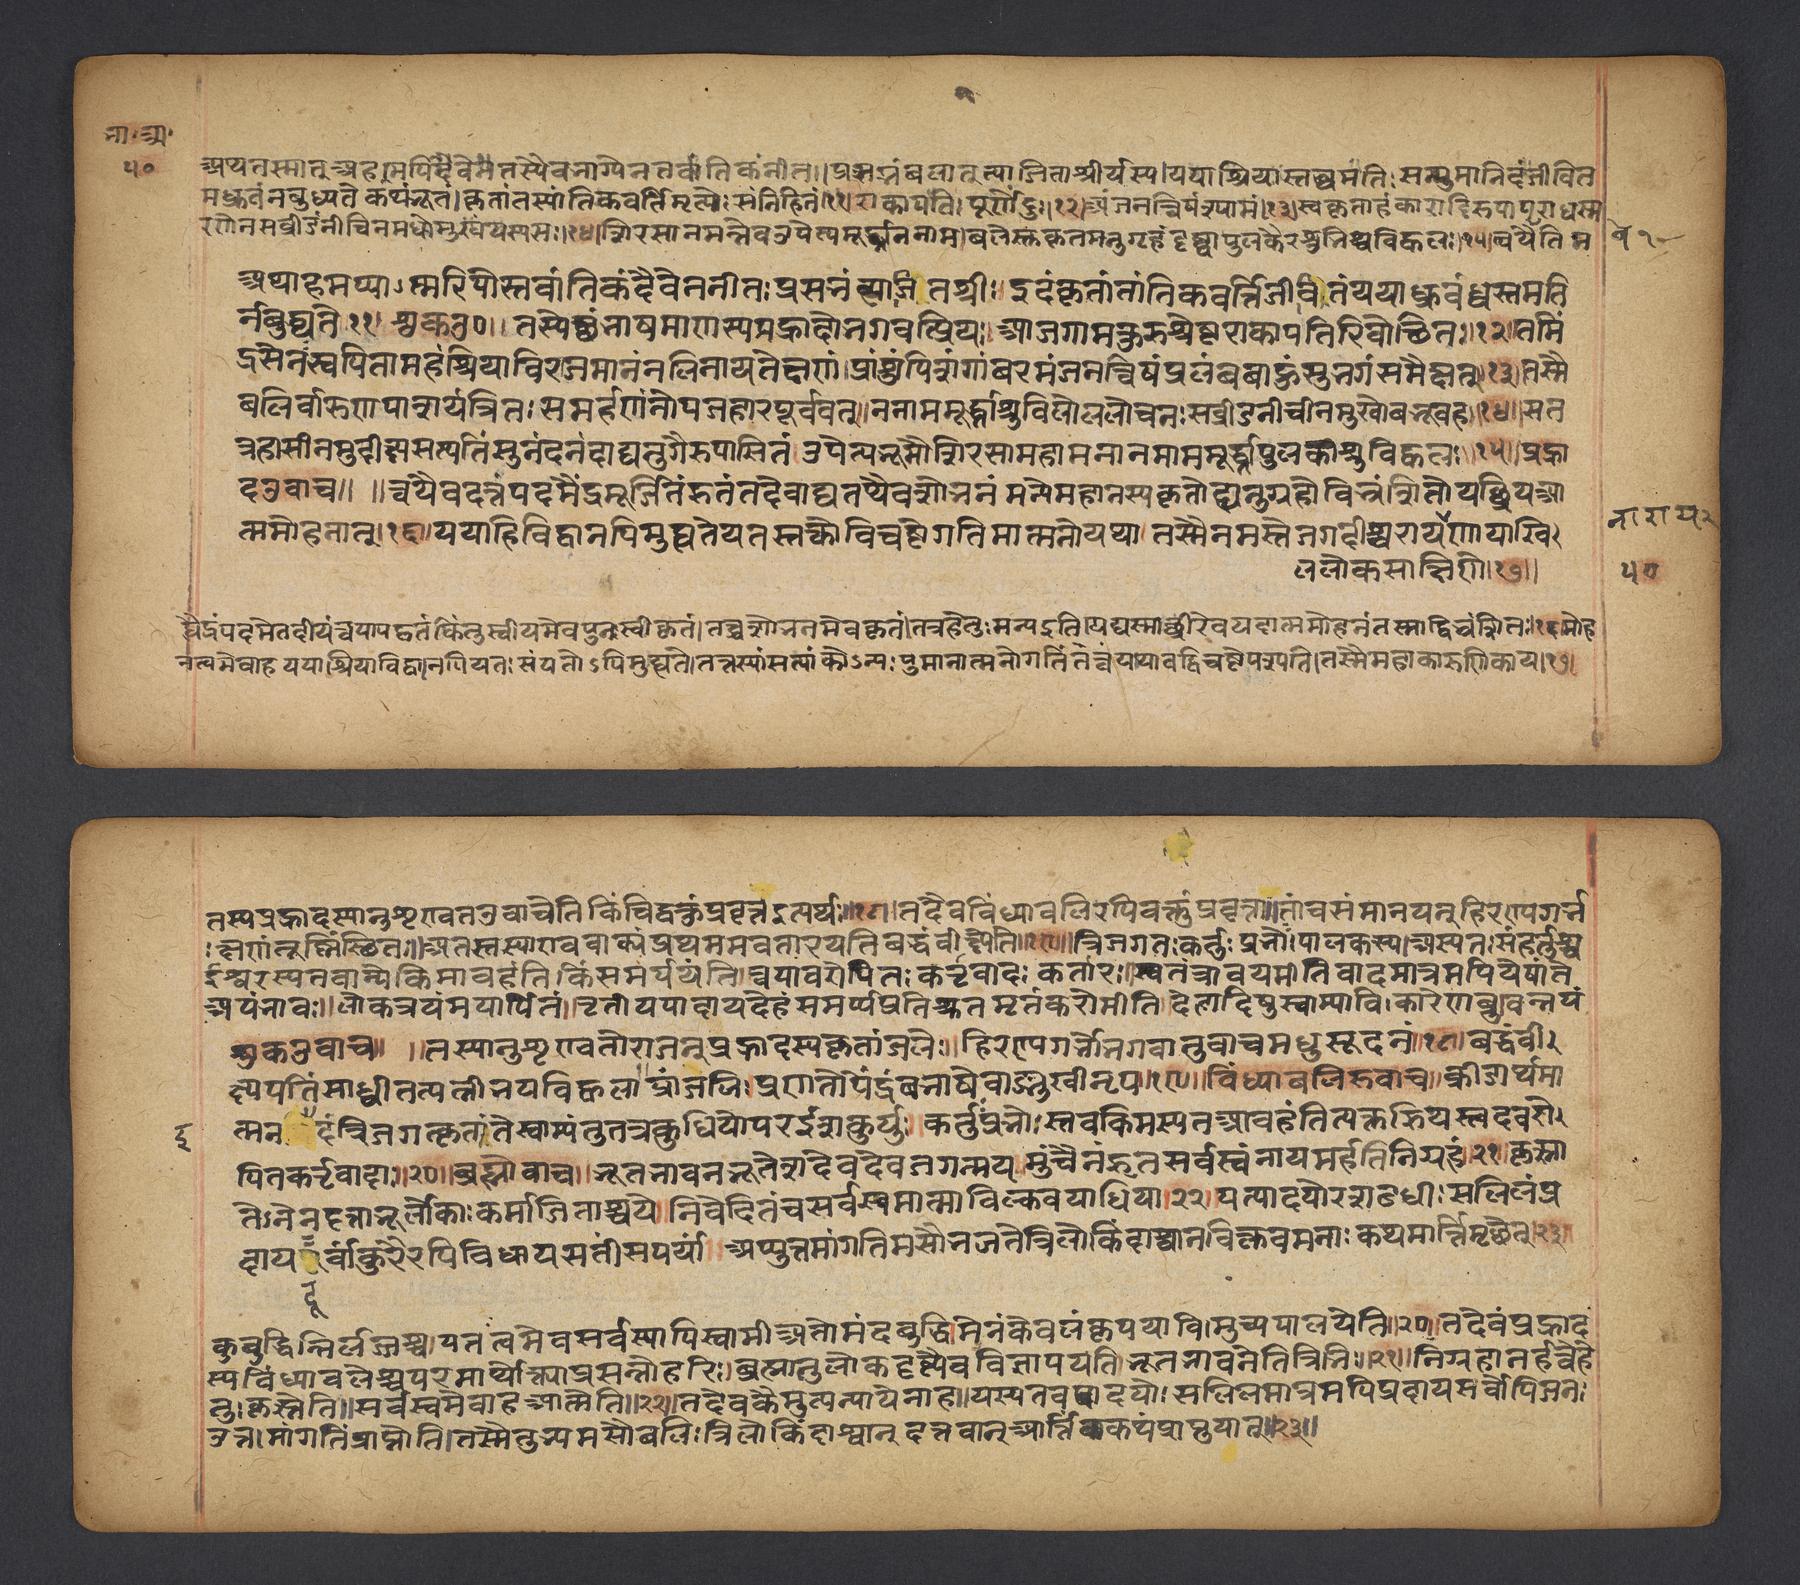 भा॰अ॰
५०
अप्यतस्मात् अहमपि दैवेन तस्यैव भाग्येन तवांतिकं नीतः। प्रसभं बलात् त्याजिता श्रीर्यस्य। यया श्रिया स्तब्धमतिः सन् पुमानिदं जीवित
मध्रुवं न बुध्यते कथंभूतं। कृतांतस्यांतिकवर्ति मृत्योः संनिहितं।११। राकापतिः पूर्णेंदुः।१२। अंजनत्विषं श्यामं।१३। स्वकृताहंकारादिरूपापराधस्म
रणेन सव्रीडनीचीनमधोमुखं यस्य सः।१४। शिरसानमन्नेव उपेत्य मूर्द्ध्ना ननाम। बलेस्तत्कृतमनुग्रहं दृष्ट्वा पुलकैरश्रुभिश्च विह्वलः।१५। त्वयैति म
अथाहमप्याऽत्मरिपोस्तवांतिकं दैवेन नीतः प्रसभं त्याजितश्रीः। इदं कृतांतांतिकवर्त्ति जीवितं यया ध्रुवं ध्वस्तमति
र्न बुद्ध्यते ११। शुक उ०॥ तस्येत्थं भाषमाणस्य प्रह्लादो भगवत्प्रियः। आजगाम कुरुश्रेष्ठ राकापतिरिवोत्थितः।१२। तमिं
द्रसेनः स्वपितामहं श्रिया विराजमानं नलिनायतेक्षणं। प्रांशुं पिशंगांबरमंजनत्विषं प्रलंबबाहुं सुभगं समैक्षत्।१३। तस्मै
बलिर्वारुणपाशयंत्रितः समर्हणं नोपजहार पूर्ववत्। ननाम मूर्द्ध्नाश्रुविलोललोचनः सव्रीडनीचीनमुखो बभूव ह।१४। स त
त्रहासीनमुदीक्ष्य सत्पतिं सुनंदनंदाद्यनुगैरुपासितं उपेत्य भूमौ शिरसा महामना ननाम मूर्द्ध्ना पुलकाश्रुविह्वलः।१५। प्रह्ला
द उवाच॥ ॥त्वयैव दत्तं पदमैंद्रमूर्जितं हृतं तदेवाद्य तथैव शोभनं मन्ये महानस्य कृतो ह्यनुग्रहो विभ्रंशितो यच्छ्रिय आ
त्ममोहनात्।१६। यया हि विद्वानपि मुह्यते यतस्तत्को विचष्टे गतिमात्मनो यथा तस्मै नमस्ते जगदीश्वराय णायाखि।
ललोकसाक्षिणे।१७॥
नाराय२
५०
वैंद्रं पदमेतदीयं त्वयापहृतं किंतु स्वीयमेव पुनः स्वीकृतं। तच्च शोभनमेव कृतं। तत्र हेतुः मन्य इति। यद्यस्माच्छ्रीरेव यदात्ममोहनं तस्माद्विभ्रंशितः।१६। मोह
नत्वमेवाह यया श्रिया विद्वानपि यतः संयतोऽपि मुह्यते। तत्तस्यां सत्यां कोऽन्यः पुमानात्मनो गतिं तत्त्वं यथावद्विचष्टे पश्यति। तस्मै महाकारुणिकाय।१७।
तस्य प्रह्लादस्यानुशृण्वत उवाचेति किंचिद्वक्तुं प्रवृत्त इत्यर्थः॥१८॥ तदैव विंध्यावलिरपि वक्तुं प्रवृत्ता॥ तां च संमानयन् हिरण्यगर्भ
ः क्षणं तूष्णीं स्थितः॥ अतस्तस्या एव वाक्यं प्रथममवतारयति बद्धं वीक्ष्येति॥१९॥ त्रिजगतः कर्तुः प्रभोः पालकस्य। अस्यतः संहर्तुश्च
ईश्वरस्य तवान्ये किमावहंति। किं समर्पयंति। त्वयावरोपितः कर्तृवादः कर्तारः। स्वतंत्रा वयमिति वादमात्रमपि येषां ते
अयं भावः॥ लोकत्रयं मयार्पितं। तृतीयपादाय देहं समर्प्य प्रतिश्रुतमृतं करोमीति देहादिषु स्वाम्याविष्कारेण ब्रुवन्नयं
शुक उवाच॥ ॥तस्यानुशृण्वतो राजन् प्रह्लादस्य कृतांजलेः॥ हिरण्यगर्भो भगवानुवाच मधुसूदनं।१८। बद्धं वी।
क्ष्य पतिं साध्वी तत्पत्नी भयविह्वला प्रांजलिः प्रणतोपेंद्रं बभाषेवाङ्मुखी नृप।१९॥ विंध्यावलिरुवाच॥ क्रीडार्थमा
त्मन इदं त्रिजगत्कृतं ते स्वाम्यं तु तत्र कुधियोपर ईश कुर्युः। कर्तुः प्रभोस्तव किमस्यत आवहंति त्यक्तह्रियस्त्वदवरो।
इ
पितकर्तृवादाः॥२०॥ ब्रह्मोवाच॥ भूतभावन भूतेश देवदेव जगन्मय मुंचैनं हृतसर्वस्वं नायमर्हति निग्रहं।२१। कृत्स्ना
तेऽनेन दत्ता भूर्लोकाः कर्मार्जिताश्च ये। निवेदितं च सर्वस्वमात्माविक्लवया धिया।२२। यत्पादयोरशठधीः सलिलं प्र
दाय दूर्वांकुरैरपि विधाय सतीं सपर्यां अप्युत्तमां गतिमसौ भजते त्रिलोकिं दाश्वानविक्लवमनाः कथमार्त्तिमृच्छेत्।२३॥
दू
कुबुद्धिर्निर्लज्जश्च। यतस्त्वमेव सर्वस्यापि स्वामी अतो मंदबुद्धिमेनं केवलं कृपया वि। मुच्य पालयेति।२०। तदेवं प्रह्लाद
स्य विंध्यावलेश्च परमार्थोक्त्या प्रसन्नो हरिः। ब्रह्मा तु लोकदृष्ट्यैव विज्ञापयति भूतभावनेति त्रिभिः॥२१॥ निग्रहानर्हत्वे हे
तुः कृत्स्नेति॥ सर्वस्वमेवाह आत्मेति॥२२॥ तदेव कैमुत्यन्यायेनाह॥ यस्य तव पादयोः सलिलमात्रमपि प्रदाय सर्वोपि जनः
उत्तमां गतिं प्राप्नोति। तस्मै तुभ्यमसौ बलिः त्रिलोकिं दाश्वान् दत्तवान् आर्तिं कथं प्राप्नुयात्॥२३॥